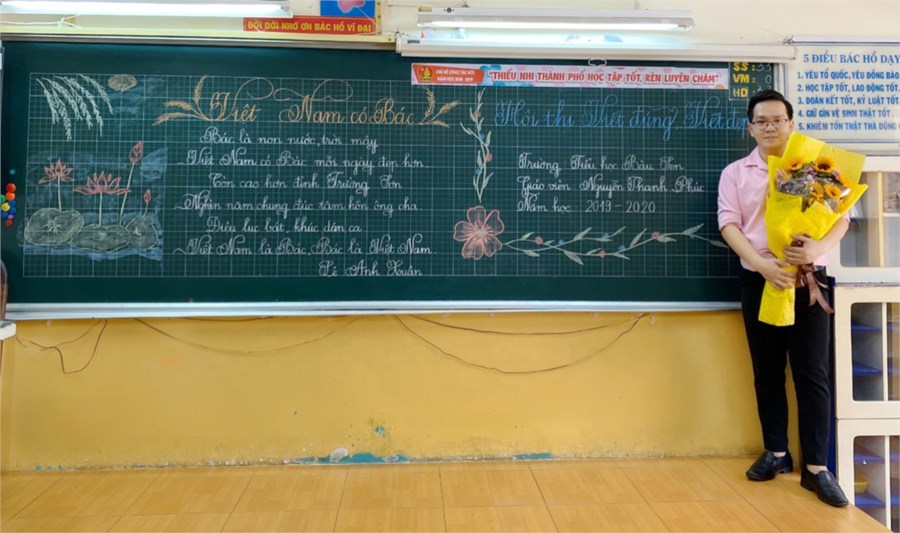 ĐỜI ĐỜI NHỚ ƠN BÁC HỒ VĨ ĐẠI
"THIẾU NHI THÀNH PHỐ HỌC TẬP TỐT, RÈN LUYỆN CHĂM"
Việt Nam có Bác
Bác là non nước, trời mây
Việt Nam có Bác mỗi ngày đẹp hơn
Còn cao hơn đỉnh Trường Sơn
Nghìn năm chung đúc tâm hồn ông cha
Điệu lục bát, khúc dân ca
Việt Nam là Bác, Bác là Việt Nam
Lê Anh Xuân
Hội thi Viết đúng Viết đẹp
Trường Tiểu học Bàu Sen
Giáo viên Nguyễn Thanh Phúc
Năm học 2019 - 2020
SS: 33
VM: 0
HD:
5 ĐIỀU BÁC HỒ DẠY
1. YÊU TỔ QUỐC, YÊU ĐỒNG BÀO
2. HỌC TẬP TỐT, LAO ĐỘNG TỐT.
3. ĐOÀN KẾT TỐT, KỶ LUẬT TỐT
4. GIỮ GÌN VỆ SINH THẬT TỐT.
5. KHIÊM TỐN THẬT THÀ DŨNG